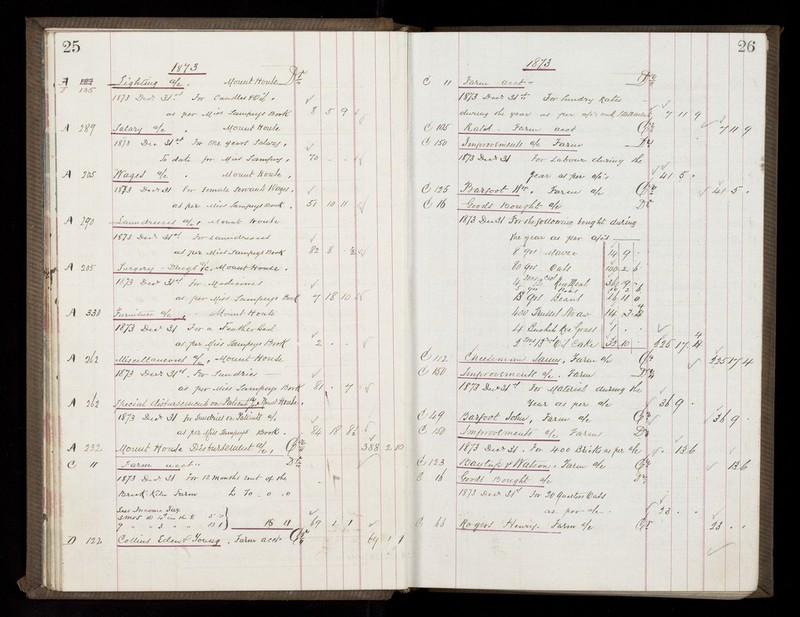 25
1873
Lighting a/c. Mount House Dr
135
1873 Decr 31st For Candles &c.
as per Miss Sampeys Book 8 5 9
A 289 Salary a/c. Mount House
1873 Dec 31st For One years Salary,
to date for Miss Sampey. 70 - -
A 205 Wages a/c. Mount House.
1873 Decr 31 For female Servants Wages.
as per Miss Sampeys Book. 51 10 11
A 290 Laundresses a/c, Mount House
1873 Decr 31st For Laundresses
as per Miss Sampeys Book 82 8
A 205 Surgery - Drugs &c, Mount House.
1873 Decr 31st For Medicines
as per Miss Sampeys Book 7 18 10
A 330 Furniture a/c, Mount House
1873 Decr 31 For a Feather bed
as per Miss Sampeys Book 2 - -
A 262 Miscellaneous a/c, Mount House
1873 Decr 31st. For Sundries
as per Miss Sampeys Book 81 - 7
A 262 Special disbursements on Patients a/c, Mount House.
1873 Decr 31 for Sundries on Patients a/c,
as per Miss Sampeys Book. 84 18 8½
A 232 Mount House Disbursement a/c, Cr 388 2 10
C 11 Farm acct. Dr
1873 Decr 31st For 12 months rent of the
Brick Kiln Farm £ 70 . 0 . 0
Less Income Tax
16 11 69 1 1
D 122 Collins Eden & Young, Farm acct Cr 69 1 1
26
1873
C 11 Farm acct Dr
1873 Decr 31st For Sundry Rates
during the year as per a/cs and Statement 7 11 9
C 105 Rates. Farm acct Cr 7 11 9
C 150 Improvements a/c Farm Dr
1873 Decr 31 For Labour during the
year as per a/cs 41 5 -
C 125 Barfoot Wm. Farm a/c Cr 41 5 -
C 16 Goods Bought a/c Dr
1873 Decr 31 For the following bought during
the year as per a/cs
8 qrs 14 9 -
80 qrs Oats 100 2 6
18 qrs Beans
400 Trusses Straw
4 Bushels Rye Grass 1 - -
Oil Cake 225 17 4
C 112 Farm a/c Cr 225 17 4
C 150 Improvements a/c. Farm Dr
1873 Decr 31st For Material during the
Year as per a/c 36 9 -
C 49 Barfoot John, Farm a/c Cr 36 9 -
C 150 Improvements a/c Farm Dr
1873 Decr 31. For 400 Bricks as per a/c 13 6
C 123 & Watson. Farm a/c Cr 13 6
C 16 Goods Bought a/c Dr
1873 Decr 31st For 20 Quarters Oats
as per a/c 23 - -
C 66 Rogers Henry. Farm a/c Cr 23 - -